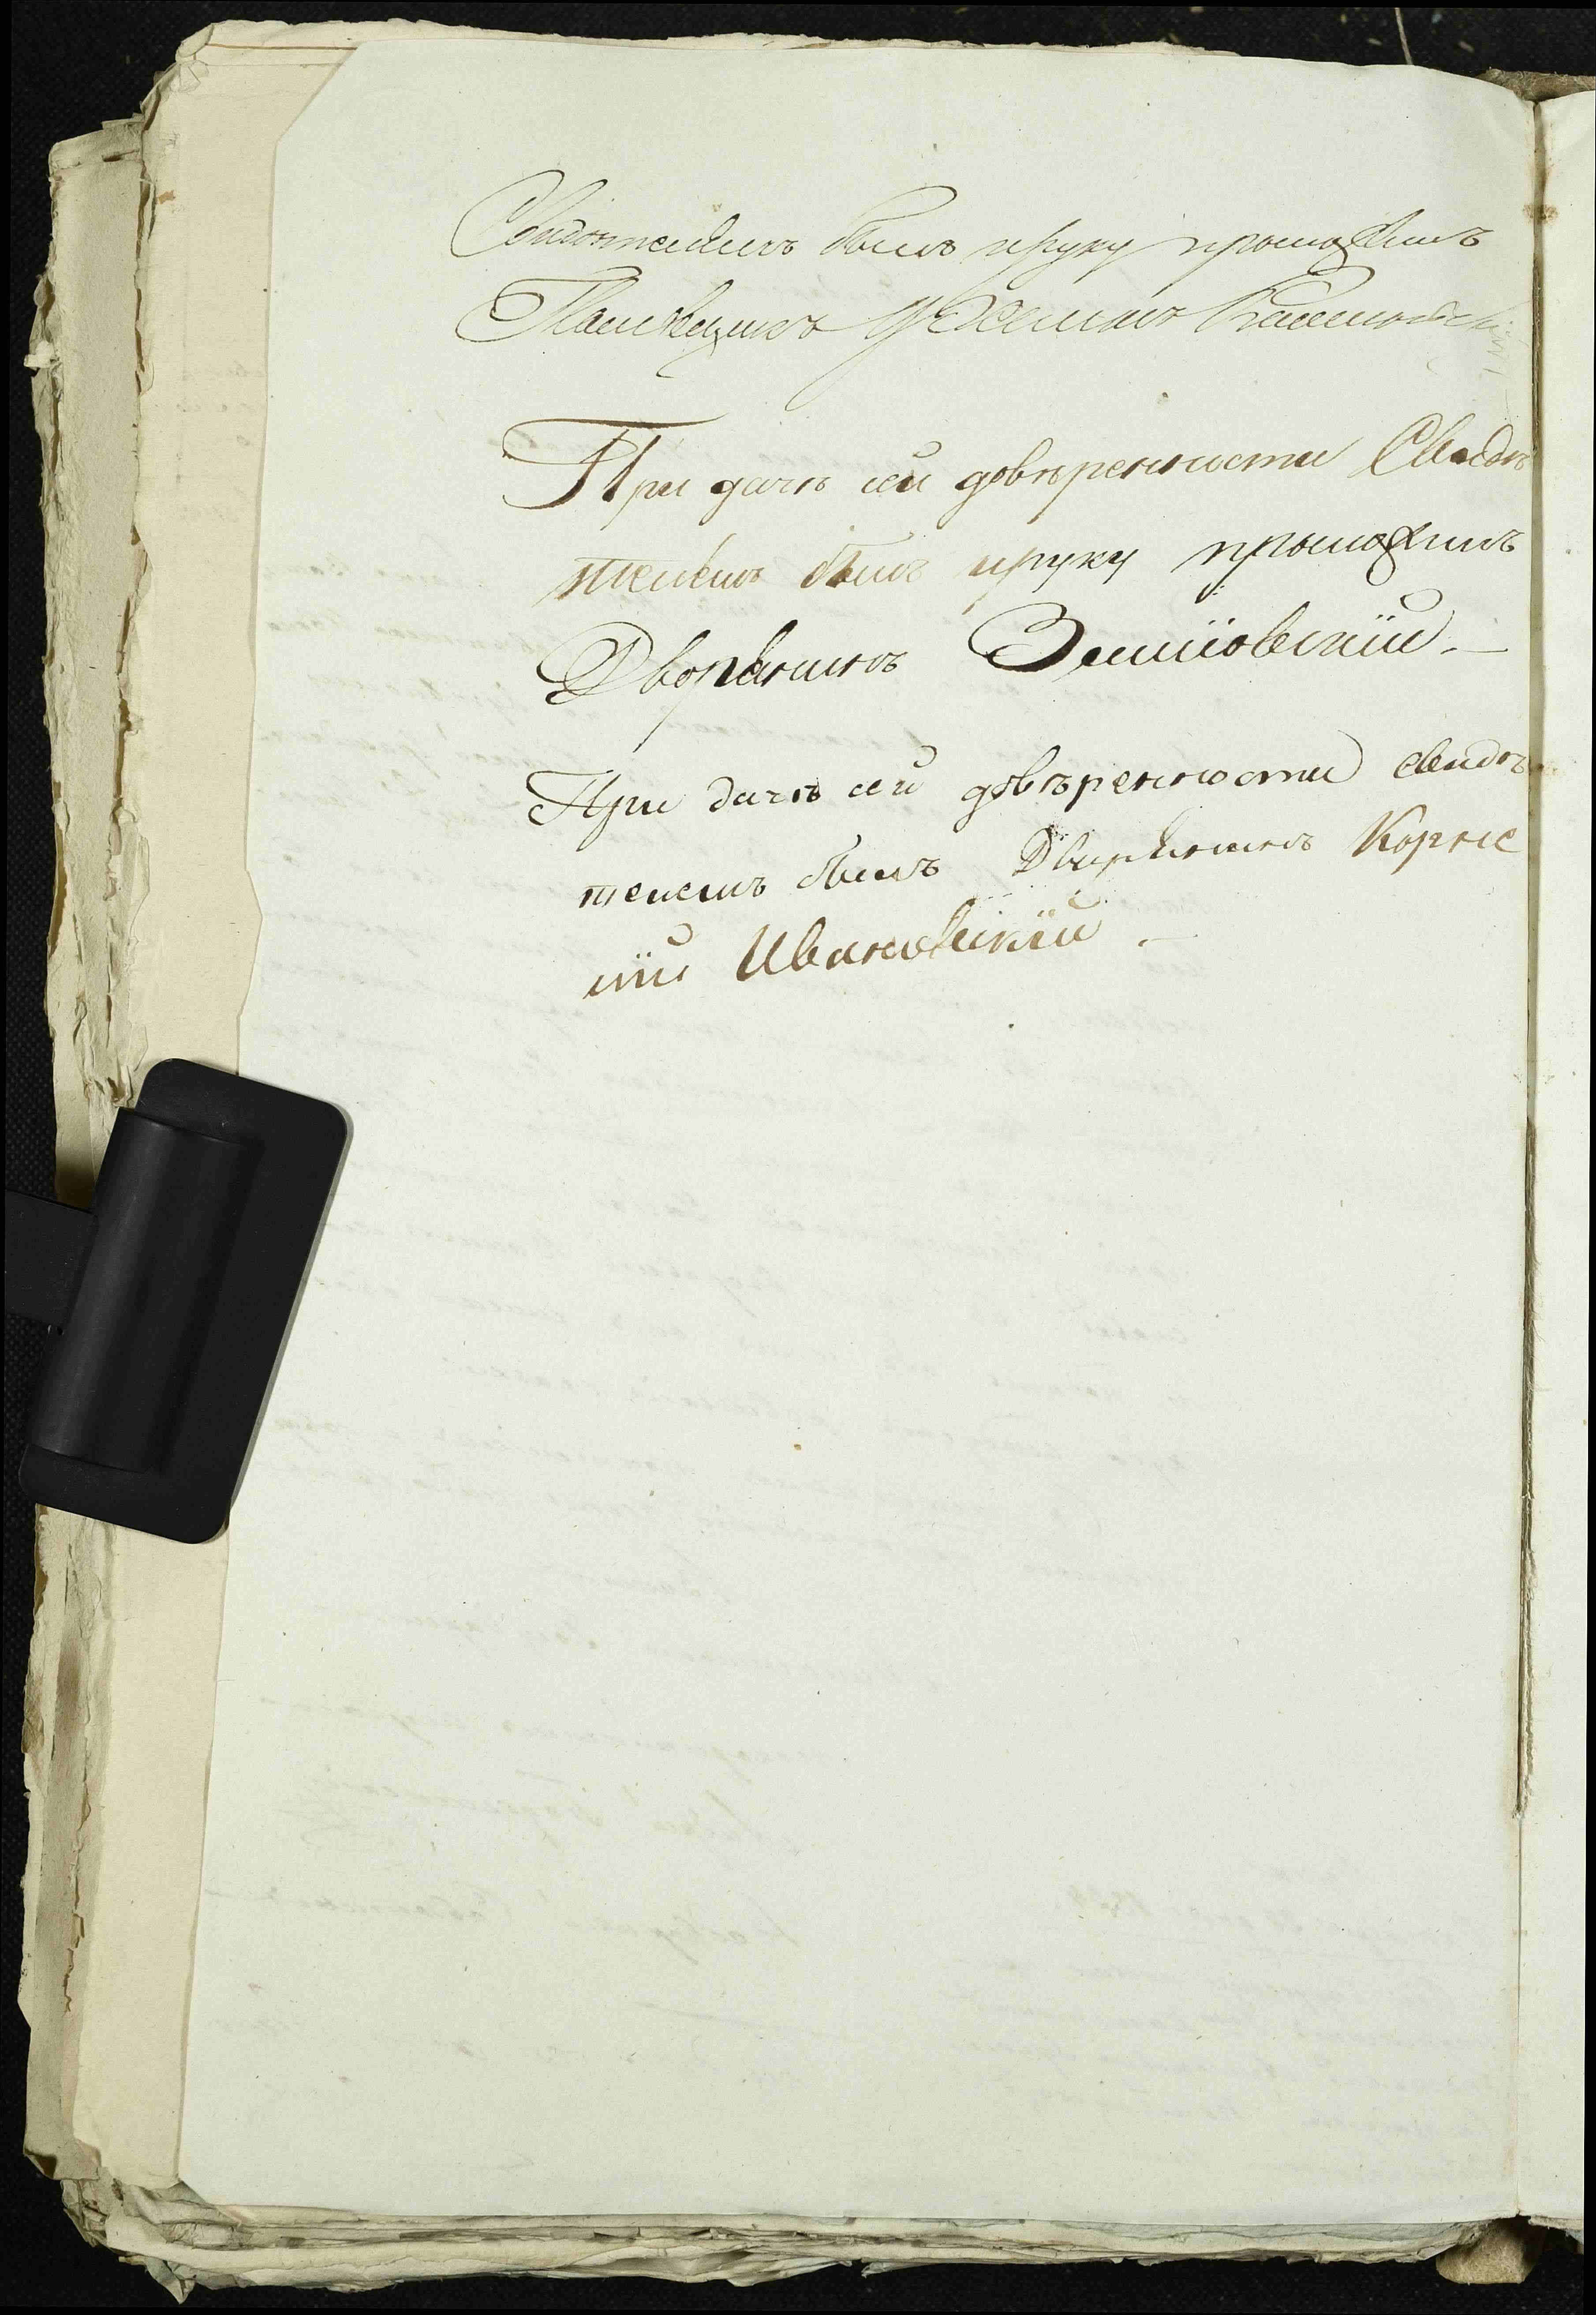 Свидетелемъ былъ ируку приложилъ
Помѣщикъ
При дачѣ сей довѣренности Свидѣ
телемъ былъ ируку приложилъ
Дворянинъ
При дачѣ сей довѣренности свидѣ
телемъ былъ Дворянинъ Корне
лій Ивановскій